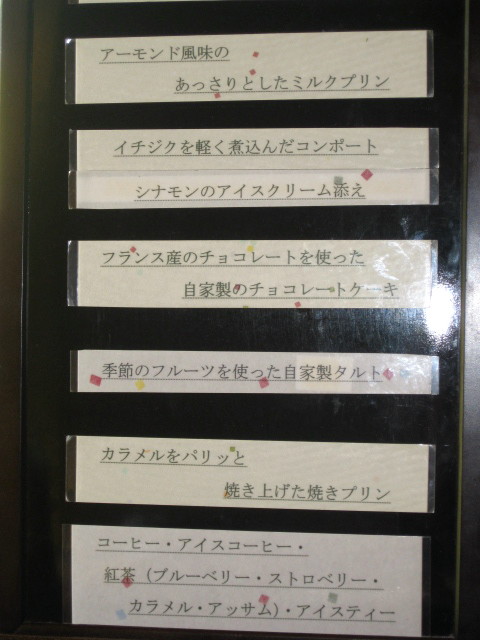 アーモンド風味の
あっさりとしたミルクプリン
イチジクを軽く煮込んだコンポート
シナモンのアイスクリーム添え
フランス産のチョコレートを使った
自家製のチョコレートケーキ
季節のフルーツを使った自家製タルト
カラメルをパリッと
焼き上げた焼きプリン
コーヒー・アイスコーヒー・
紅茶（ブルーベリー・ストロベリー・
カラメル・アッサム）・アイスティー